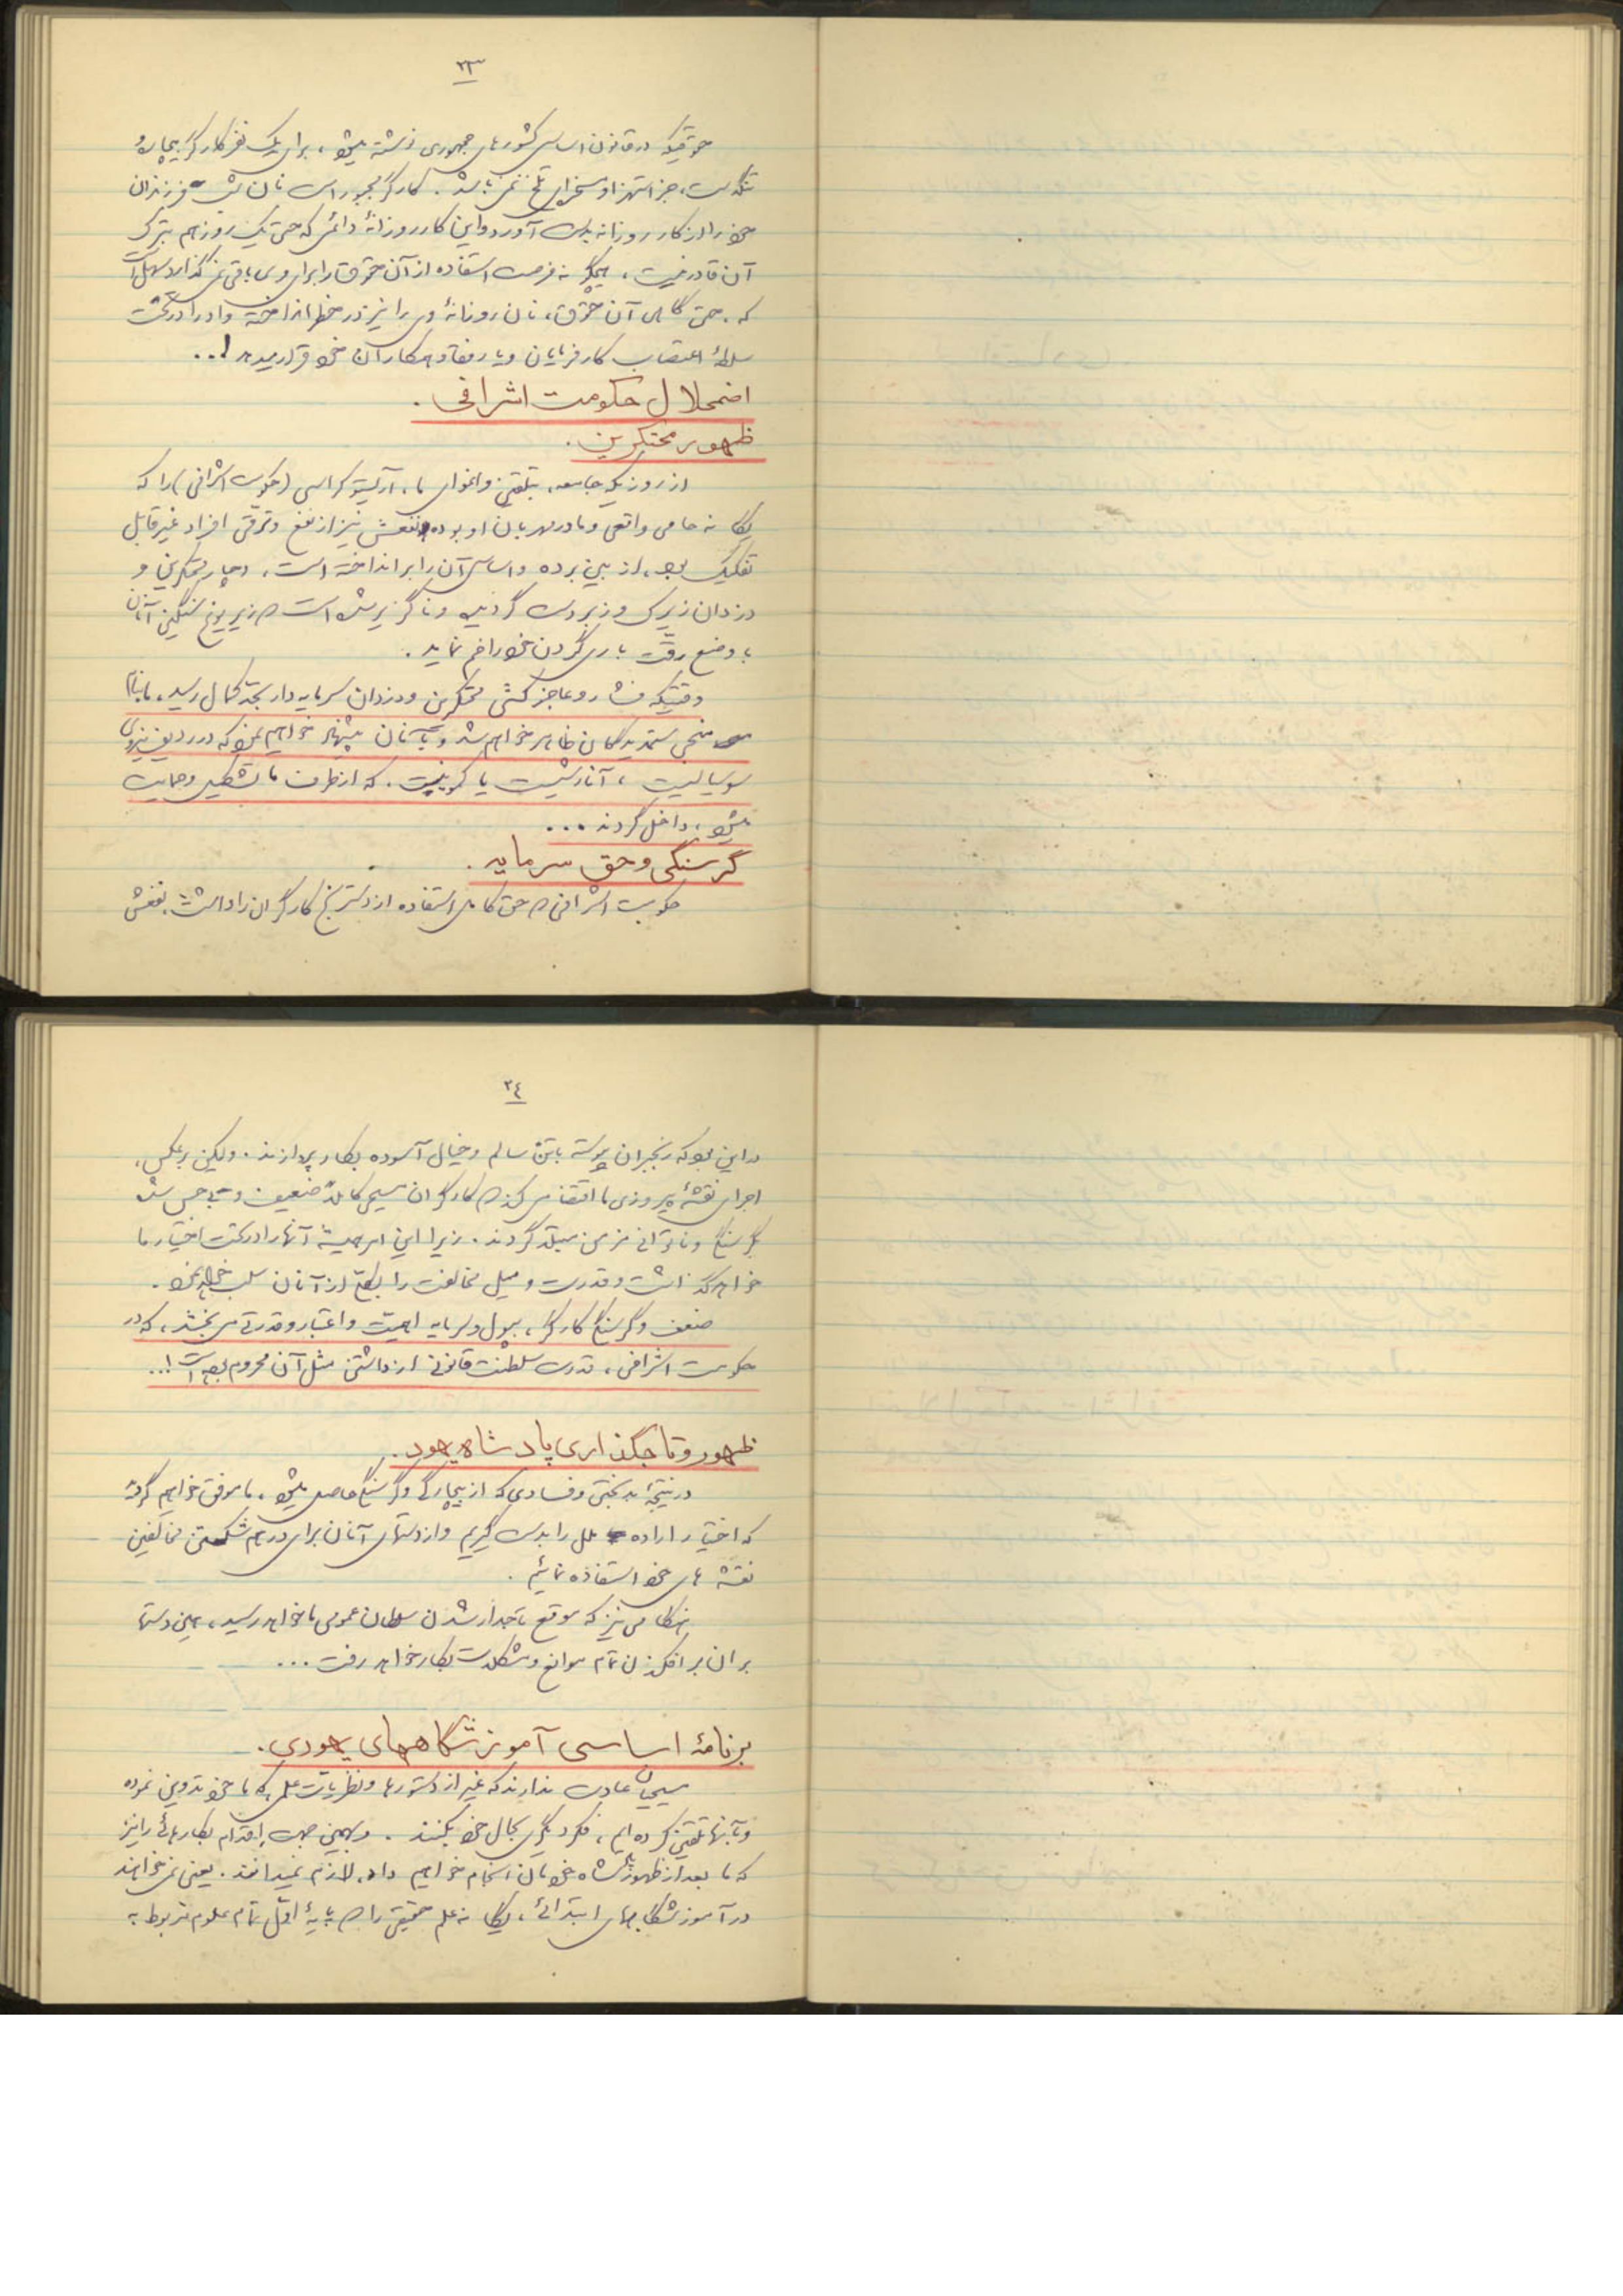 ۲۳
حقوقیکه در قانون اساسی کشورهای جمهوری نوشته میشود، برای یک نفر کارگر بیچاره و
تنگدست، جز استهزاء و سخریه تلخ نمی باشد. کارگر مجبور است نان فرزندان
خود را از کار روزانه بدست آورد و این کار روزانهٔ دائمی که حتی یک روز هم بترک
آن قادر نیست، هیچگونه فرصت استفاده از آن حقوق را برای وی باقی نمی گذارد
که، حتی گاهی آن حقوق، نان روزانهٔ وی را نیز در خطر انداخته و او را در تحت
سلطهٔ اعتصاب کارفرمایان و یا رفقا و همکاران خود قرار میدهد!..
اضمحلال حکومت اشرافی.
ظهور محتکرین.
از روزیکه جامعه، بتلقین و اغوای ما، آریستوکراسی (حکومت اشرافی) را که
یگانه حامی واقعی و مادر مهربان او بوده و نفعش نیز از نفع و ترقی افراد غیر قابل
تفکیک بود، از بین برده و اساس آن را برانداخته است، دچار محتکرین و
دزدان زیرک و زبردست گردیده و ناگزیر شده است که زیر یوغ سنگین آنان
با وضع رقت باری گردن خود را خم نماید.
وقتیکه فشار و عاجز کشی محتکرین و دزدان سرمایه دار بحد کمال رسید، ما بنام
منجی ستمدیدگان ظاهر خواهیم شد و بآنان پیشنهاد خواهیم نمود که در ردیف نیروی
سوسیالیست، آنارشیست یا کمونیست. که از طرف ما تشکیل و حمایت
میشود، داخل گردند ...
گرسنگی و حق سرمایه.
حکومت اشرافی که حق کامل استفاده از دسترنج کارگران را داشت، نفعش
۲۴
در این بود که رنجبران پیوسته با تن سالم و خیال آسوده بکار پردازند. ولیکن برعکس،
اجرای نقشهٔ پیروزی ما اقتضا می کند که کارگران مسیحی کاملاً ضعیف و بی حس شده
بگرسنگی و ناتوانی مزمن مبتلا گردند. زیرا این امر همیشه آنها را در تحت اختیار ما
خواهد گذاشت و قدرت و میل مخالفت را بکلی از آنان سلب خواهد نمود.
ضعف و گرسنگی کارگر، بپول و سرمایه اهمیت و اعتبار و قدرتی می بخشد، که در
حکومت اشرافی، قدرت سلطنت قانونی از داشتن مثل آن محروم بوده است!..
ظهور و تاجگذاری پادشاه یهود.
در نتیجهٔ بدبختی و فسادی که از بیچارگی و گرسنگی حاصل میشود، ما موفق خواهیم گردید
که اختیار ارادهٔ ملل را بدست گیریم و از دستهای آنان برای درهم شکستن مخالفین
نقشه های خود استفاده نمائیم.
هنگامی نیز که موقع تاجدار شدن سلطان عمومی ما خواهد رسید، همین دستها
برای برافکندن تمام موانع و مشکلات بکار خواهد رفت ...
برنامهٔ اساسی آموزشگاههای یهودی.
مسیحیان عادت ندارند که غیر از دستورها و نظریات علمی که ما خود تدوین نموده
و بآنها تلقین کرده ایم، فکر دیگری بحال خود بکنند. و بهمین جهت اقدام بکارهائی را نیز
که ما بعد از ظهور پادشاه خودمان انجام خواهیم داد، لازم نمیدانند. یعنی نمی خواهند
در آموزشگاههای ابتدائی، یگانه علم حقیقی را که پایهٔ اول تمام علوم مربوط به